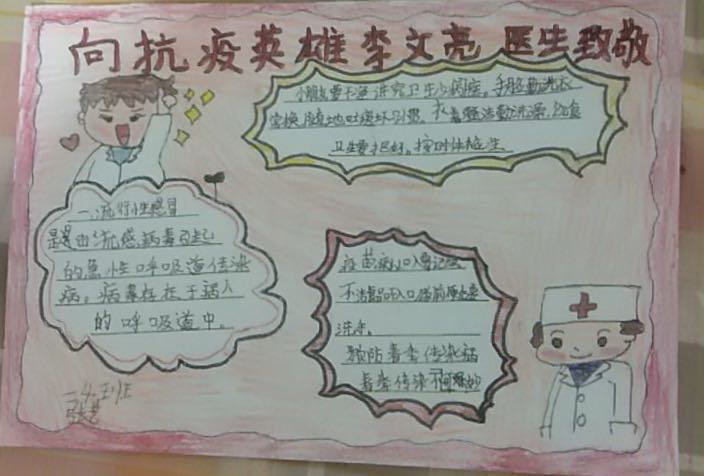 向抗疫英雄李文亮医生致敬
小朋友要干净讲究卫生少病症。手脸勤洗衣
常换随地吐痰坏习惯。衣着整洁勤洗澡,饮食
卫生要把好,按时体检
一、流行性感冒
是由流感病毒引起
的急性呼吸道传染
病。病毒存在于病人
的呼吸道中。
疫苗病从口入要记
不洁 入口 前
洗手。
预防春季传染病
春季传染